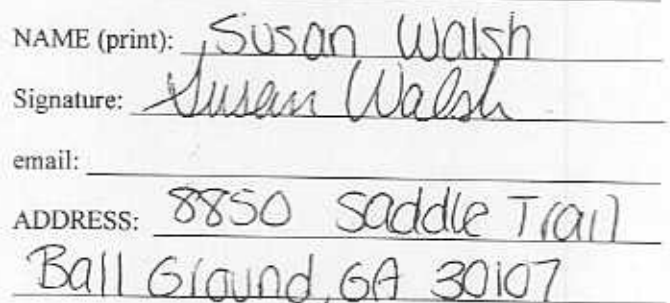 NAME (print): Susan Walsh
Signature: Susan Walsh
email:
ADDRESS: 8850 Saddle Trail
Ball Ground, GA 30107